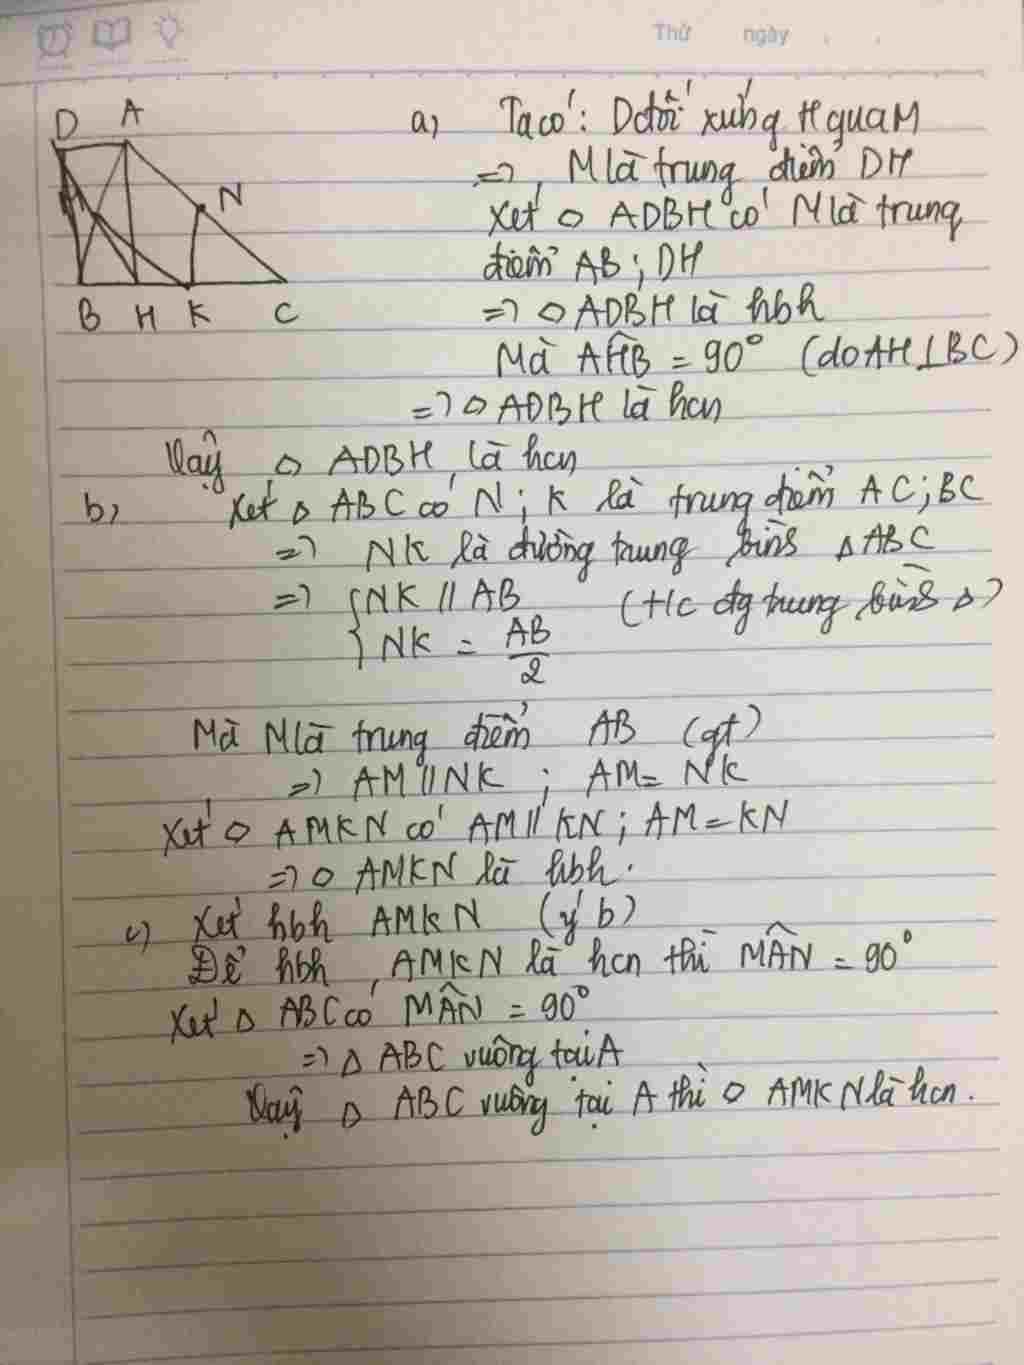 Thứ ngày
D A
N
B H K C
a, Ta có: D đối xứng H qua M
=> M là trung điểm DH
Xét ◇ ADBH có M là trung
điểm AB; DH
=> ◇ ADBH là hbh
Mà AĤB = 90° (do AH⊥BC)
=> ◇ ADBH là hcn
Vậy ◇ ADBH là hcn
b, Xét Δ ABC có N; K là trung điểm AC; BC
=> NK là đường trung bình Δ ABC
=> { NK // AB (t/c đg trung bình Δ)
NK = AB/2
Mà M là trung điểm AB (gt)
=> AM // NK ; AM = NK
Xét ◇ AMKN có AM // KN; AM = KN
=> ◇ AMKN là hbh.
c) Xét hbh AMKN (ý b)
Để hbh AMKN là hcn thì MÂN = 90°
Xét Δ ABC có MÂN = 90°
=> Δ ABC vuông tại A
Vậy Δ ABC vuông tại A thì ◇ AMKN là hcn.